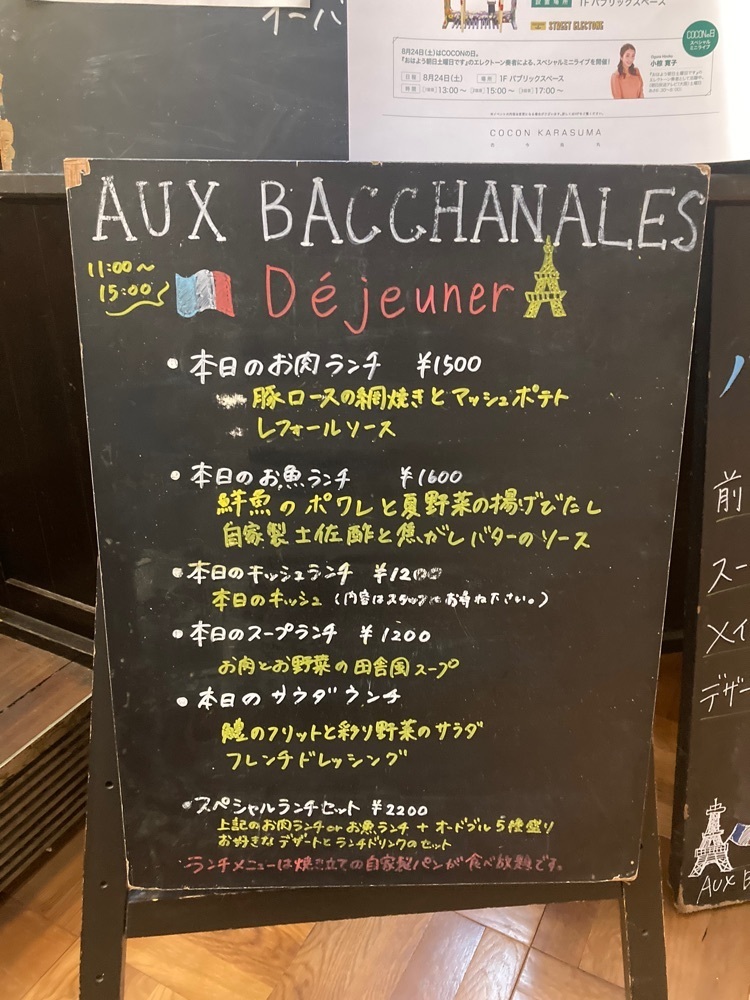 イーバ
1F パブリックスペース
STREET ELECTONE
COCONの日
スペシャル
ミニライブ
8月24日(土)はCOCONの日。
「おはよう朝日土曜日です」のエレクトーン奏者による、スペシャルミニライブを開催!
日程 8月24日(土) 場所 1F パブリックスペース
時間 13:00〜 15:00〜 17:00〜
COCON KARASUMA
古今烏丸
AUX BACCHANALES
11:00〜
15:00
Déjeuner
・本日のお肉ランチ ¥1500
豚ロースの網焼きとマッシュポテト
レフォールソース
・本日のお魚ランチ ¥1600
鮮魚のポワレと夏野菜の揚げびたし
自家製土佐酢と焦がしバターのソース
・本日のキッシュランチ ¥1200
本日のキッシュ(内容はスタッフにお尋ね下さい。)
・本日のスープランチ ¥1200
お肉とお野菜の田舎風スープ
・本日のサラダランチ
鱧のフリットと彩り野菜のサラダ
フレンチドレッシング
・スペシャルランチセット ¥2200
上記のお肉ランチorお魚ランチ+オードブル5種盛り
お好きなデザートとランチドリンクのセット
ランチメニューは焼き立ての自家製パンが食べ放題です。
前
スー
メイ
デザー
AUX B